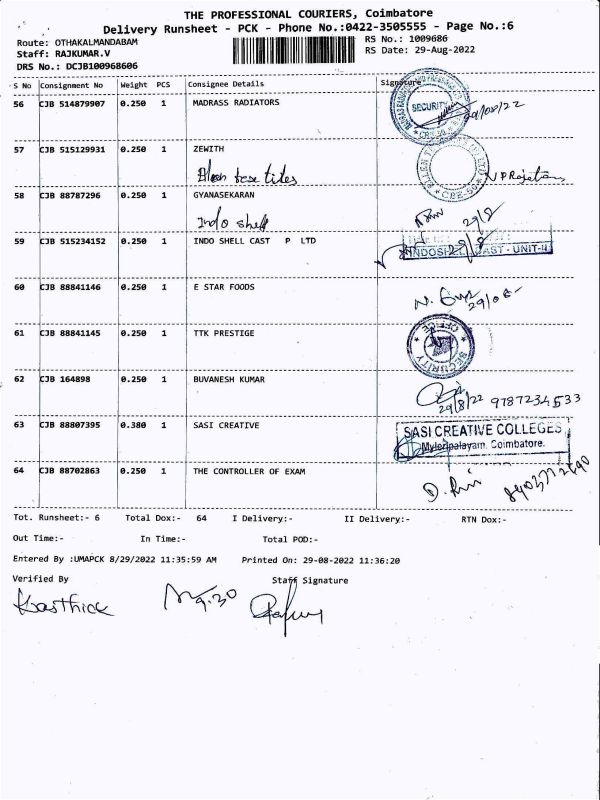 THE PROFESSIONAL COURIERS, Coimbatore
Delivery Runsheet - PCK - Phone No.:0422-3505555 - Page No.:6
Route: OTHAKALMANDABAM RS No.: 1009686
Staff: RAJKUMAR.V RS Date: 29-Aug-2022
DRS No.: DCJB100968606
S No Consignment No Weight PCS Consignee Details Signature
56 CJB 514879907 0.250 1 MADRASS RADIATORS
SECURITY 29/08/22
57 CJB 515129931 0.250 1 ZEWITH
CBE-50
58 CJB 88787296 0.250 1 GYANASEKARAN
Indo shell 29/8
59 CJB 515234152 0.250 1 INDO SHELL CAST P LTD 29/8
INDOSHELL CAST - UNIT-II
60 CJB 88841146 0.250 1 E STAR FOODS
29/08
61 CJB 88841145 0.250 1 TTK PRESTIGE
OFFICE SECURITY
62 CJB 164898 0.250 1 BUVANESH KUMAR
29/8/22 9787234533
63 CJB 88807395 0.380 1 SASI CREATIVE SASI CREATIVE COLLEGES
Myleripalayam, Coimbatore.
64 CJB 88702863 0.250 1 THE CONTROLLER OF EXAM
Tot. Runsheet:- 6 Total Dox:- 64 I Delivery:- II Delivery:- RTN Dox:-
Out Time:- In Time:- Total POD:-
Entered By :UMAPCK 8/29/2022 11:35:59 AM Printed On: 29-08-2022 11:36:20
Verified By Staff Signature
Karthick 9.30